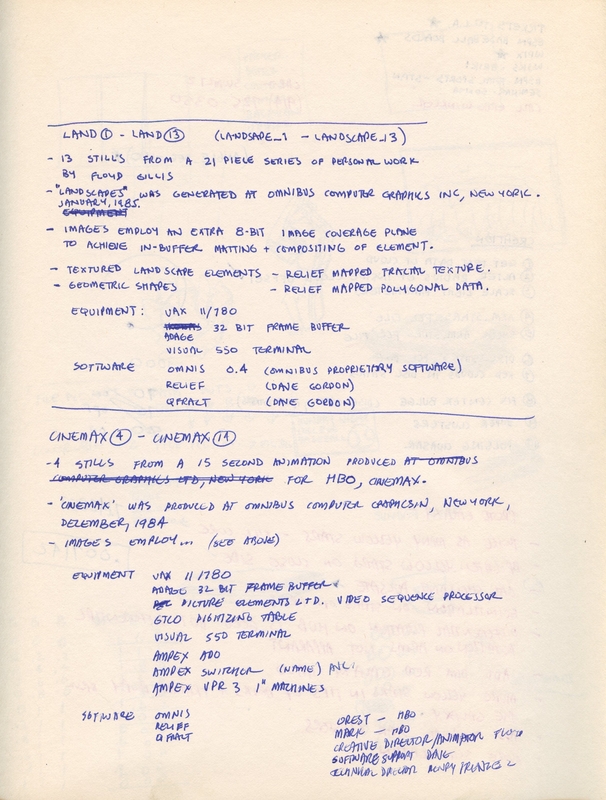 LAND ① - LAND ⑬ (LANDSAPE_1 - LANDSCAPE_13)
- 13 STILLS FROM A 21 PIECE SERIES OF PERSONAL WORK
BY FLOYD GILLIS
- "LANDSCAPES" WAS GENERATED AT OMNIBUS COMPUTER GRAPHICS INC, NEW YORK.
JANUARY, 1985.
EQUIPMENT
- IMAGES EMPLOY AN EXTRA 8-BIT IMAGE COVERAGE PLANE
TO ACHIEVE IN-BUFFER MATTING + COMPOSITING OF ELEMENT.
- TEXTURED LANDSCAPE ELEMENTS - RELIEF MAPPED FRACTAL TEXTURE.
- GEOMETRIC SHAPES - RELIEF MAPPED POLYGONAL DATA.
EQUIPMENT: VAX 11/780
32 BIT FRAME BUFFER
ADAGE
VISUAL 550 TERMINAL
SOFTWARE OMNIS 0.4 (OMNIBUS PROPRIETARY SOFTWARE)
RELIEF (DAVE GORDON)
QFRACT (DAVE GORDON)
CINEMAX ④ - CINEMAX
- 4 STILLS FROM A 15 SECOND ANIMATION PRODUCED AT OMNIBUS
COMPUTER GRAPHICS LTD, NEW YORK FOR HBO, CINEMAX.
- 'CINEMAX' WAS PRODUCED AT OMNIBUS COMPUTER GRAPHICSIN, NEW YORK,
DECEMBER, 1984
- IMAGES EMPLOY... (SEE ABOVE)
EQUIPMENT VAX 11/780
ADAGE 32 BIT FRAME BUFFER
PICTURE ELEMENTS LTD. VIDEO SEQUENCE PROCESSOR
GTCO DIGITIZING TABLE
VISUAL 550 TERMINAL
AMPEX ADO
AMPEX SWITCHER (NAME) AVC.
AMPEX VPR 3 1" MACHINES
SOFTWARE OMNIS
RELIEF
QFRACT
OREST - HBO
MARK - HBO
CREATIVE DIRECTOR/ANIMATOR FLOYD
SOFTWARE SUPPORT DAVE
TECHNICAL DIRECTOR HENRY